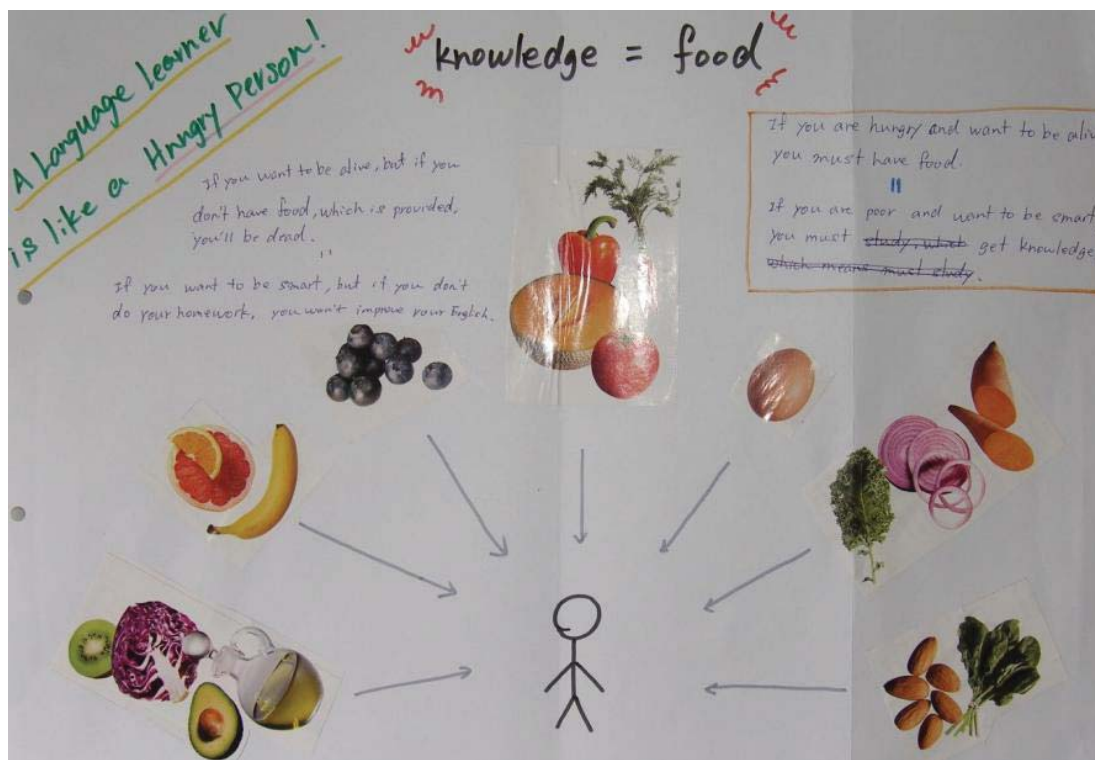 A Language Learner
is like a Hungry Person!
knowledge = food
If you want to be alive, but if you
don't have food, which is provided,
you'll be dead.
"
If you want to be smart, but if you don't
do your homework, you won't improve your English.
If you are hungry and want to be alive
you must have food.
=
If you are poor and want to be smart
you must study, which get knowledge
which means must study.